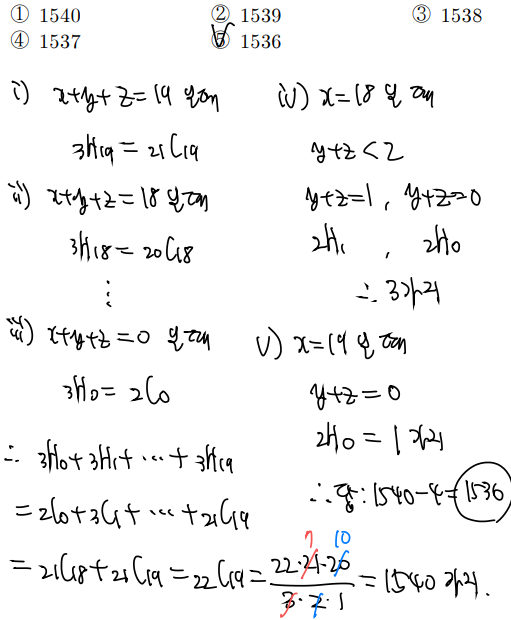 ① 1540 ② 1539 ③ 1538
④ 1537 ⑤ 1536
i) x+y+z=19 일 때
₃H₁₉ = ₂₁C₁₉
ii) x+y+z=18 일 때
₃H₁₈ = ₂₀C₁₈
⋮
iii) x+y+z=0 일 때
₃H₀ = ₂C₀
∴ ₃H₀+₃H₁+⋯+₃H₁₉
= ₂C₀+₃C₁+⋯+₂₁C₁₉
= ₂₁C₁₈+₂₁C₁₉ = ₂₂C₁₉ = (22·21·20)/(3·2·1) = 1540 가지.
7 10
iv) x=18 일 때
y+z<2
y+z=1, y+z=0
₂H₁, ₂H₀
∴ 3가지
v) x=19 일 때
y+z=0
₂H₀ = 1 가지
∴ 답: 1540-4=1536